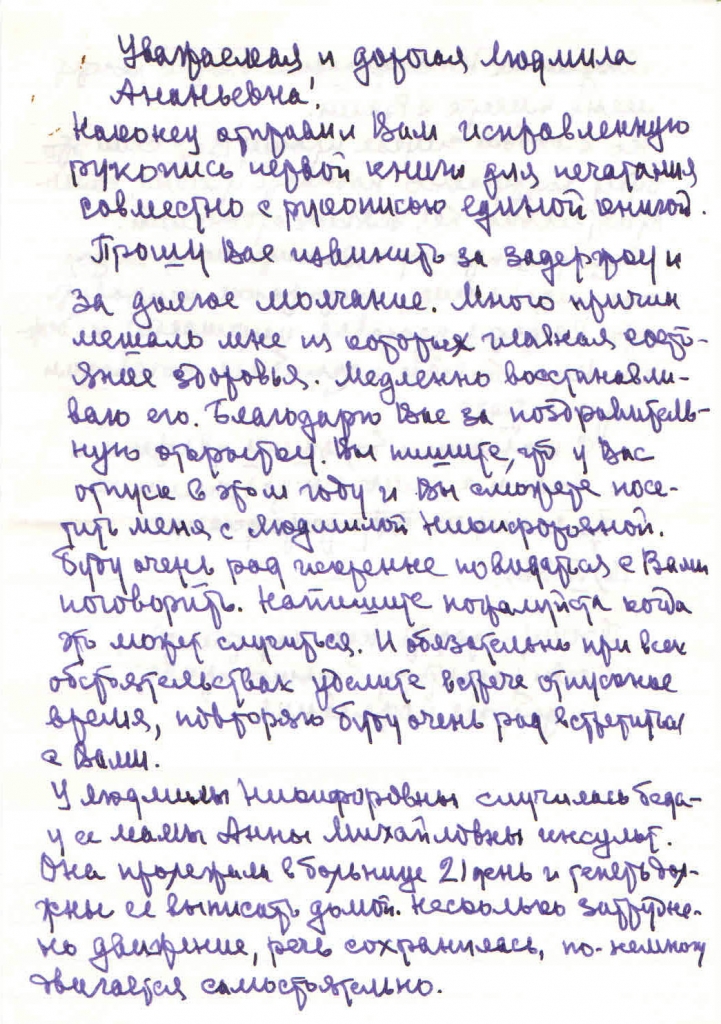 Уважаемая и дорогая Людмила
Ананьевна!
Наконец отправил Вам исправленную
рукопись первой книги для печатания
совместно с рукописью единой книгой.
Прошу Вас извинить за задержку и
за долгое молчание. Много причин
мешало мне из которых главная состо-
яние здоровья. Медленно восстанавли-
ваю его. Благодарю Вас за поздравитель-
ную открытку. Вы пишите, что у Вас
отпуск в этом году и Вы сможете посе-
тить меня с Людмилой Никифоровной.
Буду очень рад искренне повидаться с Вами
поговорить. Напишите пожалуйста когда
это может случиться. И обязательно при всех
обстоятельствах уделите встрече отпускное
время, повторяю буду очень рад встретиться
с Вами.
У Людмилы Никифоровны случилась беда-
у ее мамы Анны Михайловны инсульт.
Она пролежала в больнице 21 день и теперь дол-
жны ее выписать домой. Несколько затрудне-
но движение, речь сохранилась, по-немногу
двигается самостоятельно.